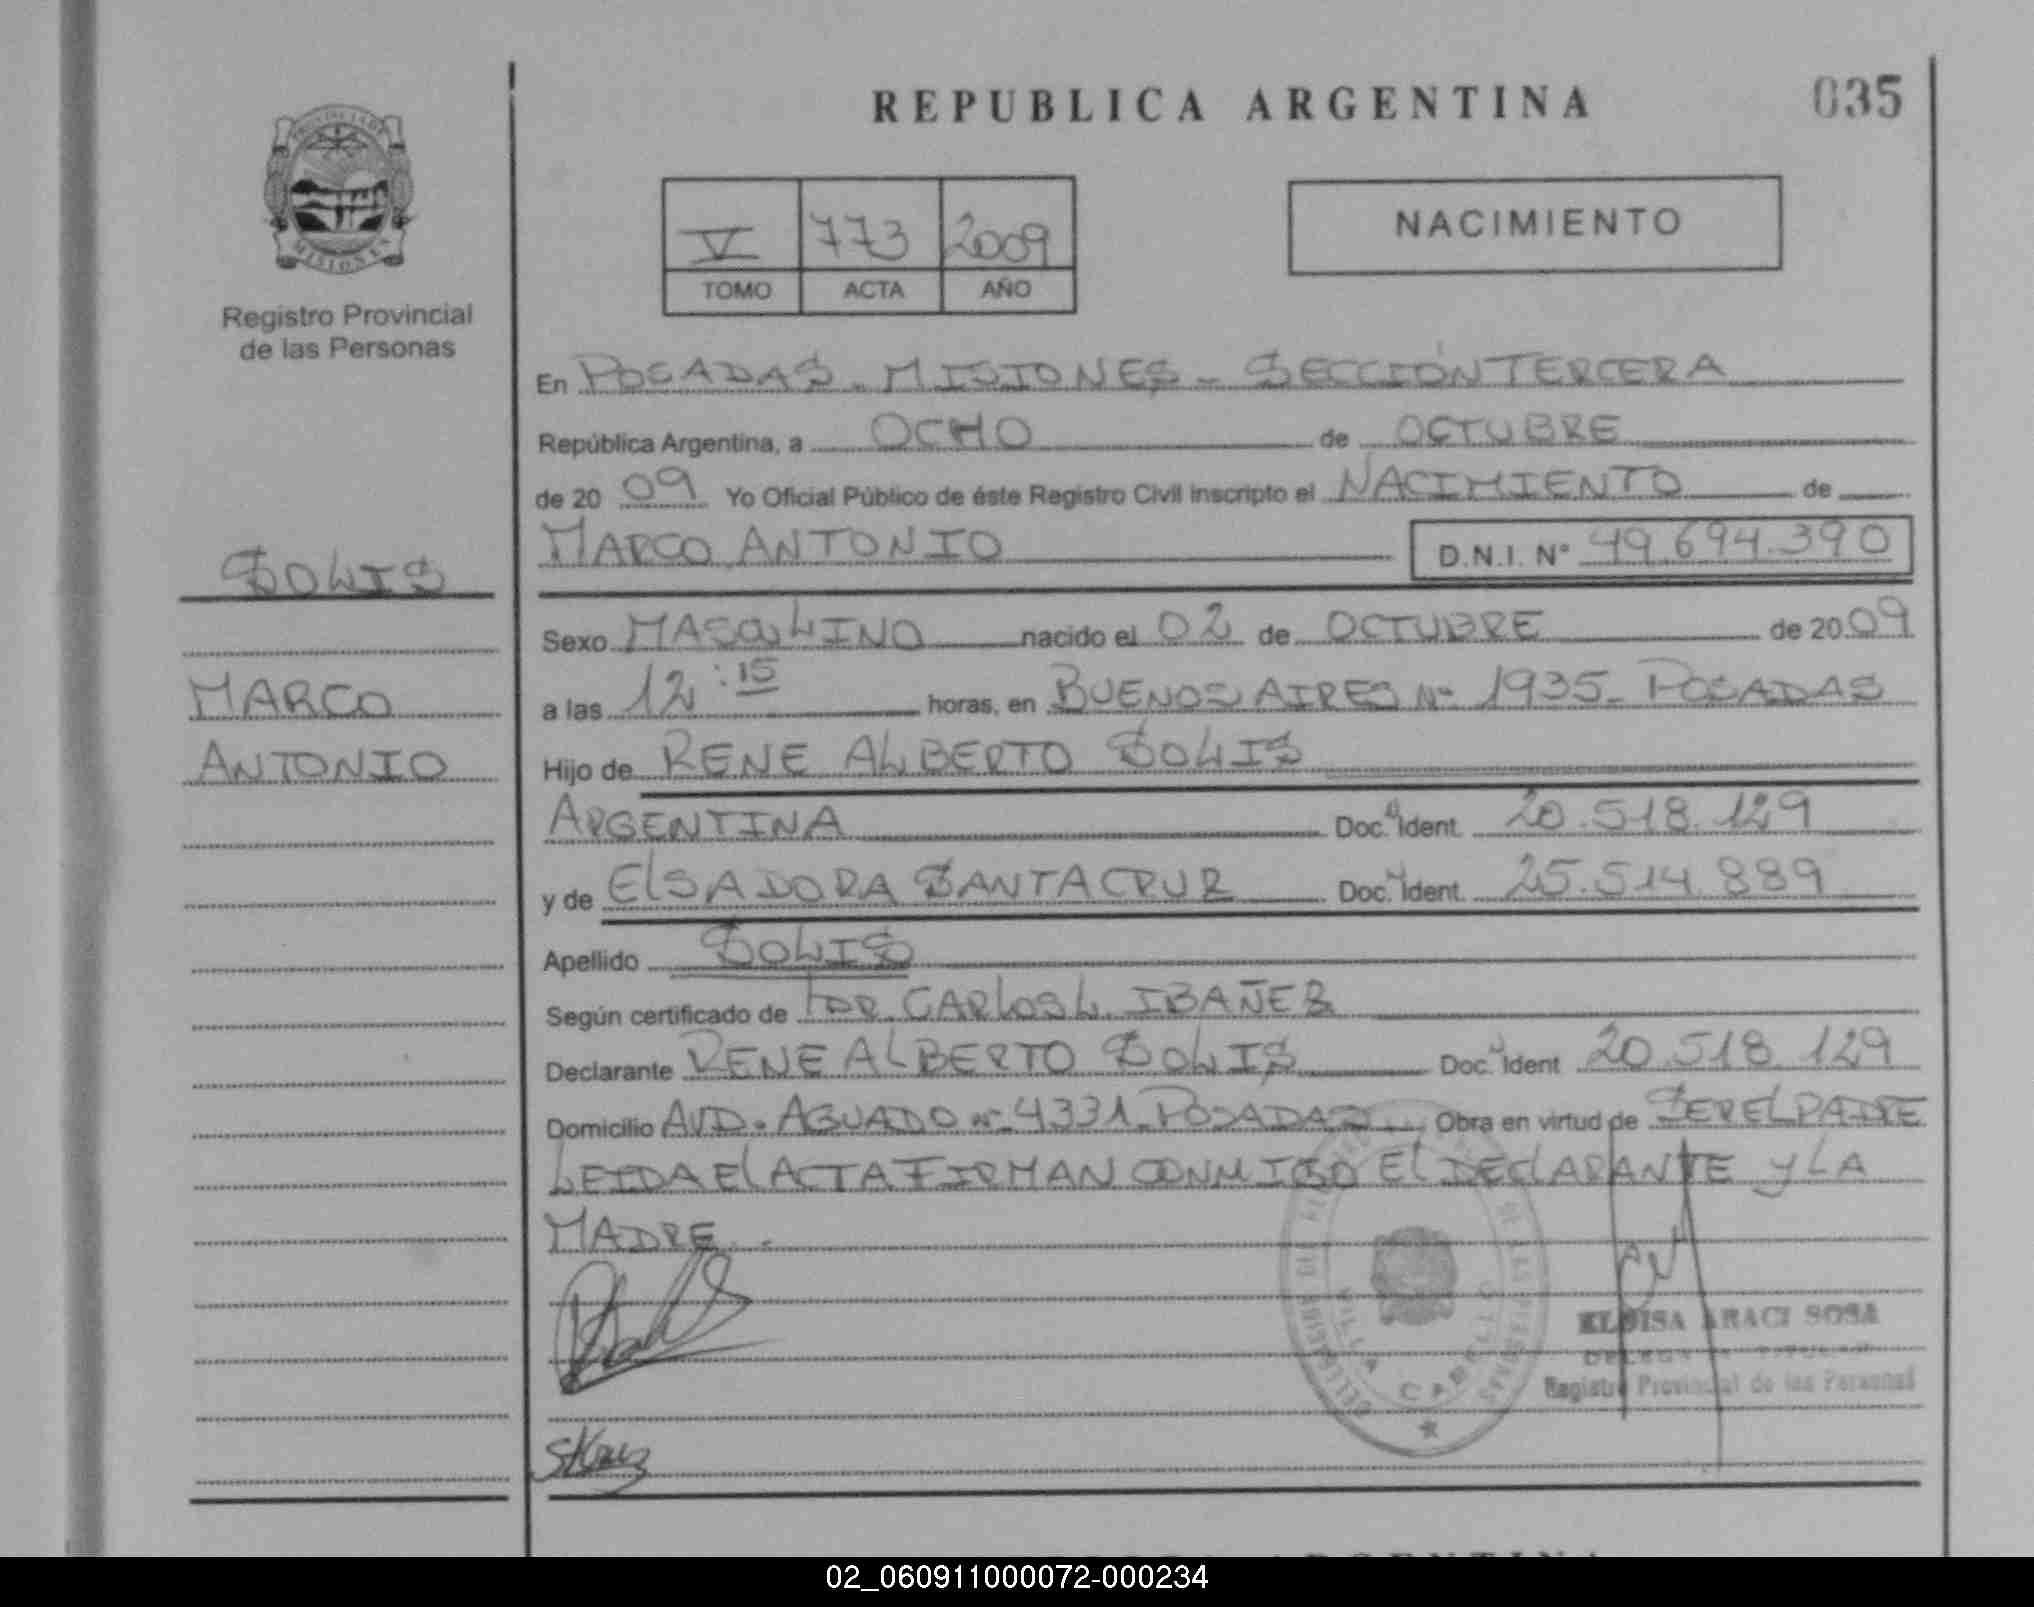 REPUBLICA ARGENTINA
035
PROVINCIA DE
MISIONES
Registro Provincial
de las Personas
V 773 2009
TOMO ACTA AÑO
NACIMIENTO
En POSADAS - MISIONES - SECCIÓN TERCERA
República Argentina, a OCHO de OCTUBRE
de 20 09 Yo Oficial Público de éste Registro Civil inscripto el NACIMIENTO de
MARCO ANTONIO D.N.I. N° 49.694.390
SOLIS
MARCO
ANTONIO
Sexo MASCULINO nacido el 02 de OCTUBRE de 20 09
a las 12:15 horas, en BUENOS AIRES Nº 1935 - POSADAS
Hijo de RENE ALBERTO SOLIS
ARGENTINA Doc. Ident. 20.518.129
y de ELSA DORA SANTACRUZ Doc. Ident. 25.514.889
Apellido SOLIS
Según certificado de DR. CARLOS L. IBAÑEZ
Declarante RENE ALBERTO SOLIS Doc. Ident 20.518.129
Domicilio AVD. AGUADO Nº 4331 - POSADAS Obra en virtud de SER EL PADRE
LEIDA EL ACTA FIRMAN CONMIGO EL DECLARANTE Y LA
MADRE.
VILLA CABELLO
ELOISA ARACI SOSA
Registro Provincial de las Personas
02_060911000072-000234